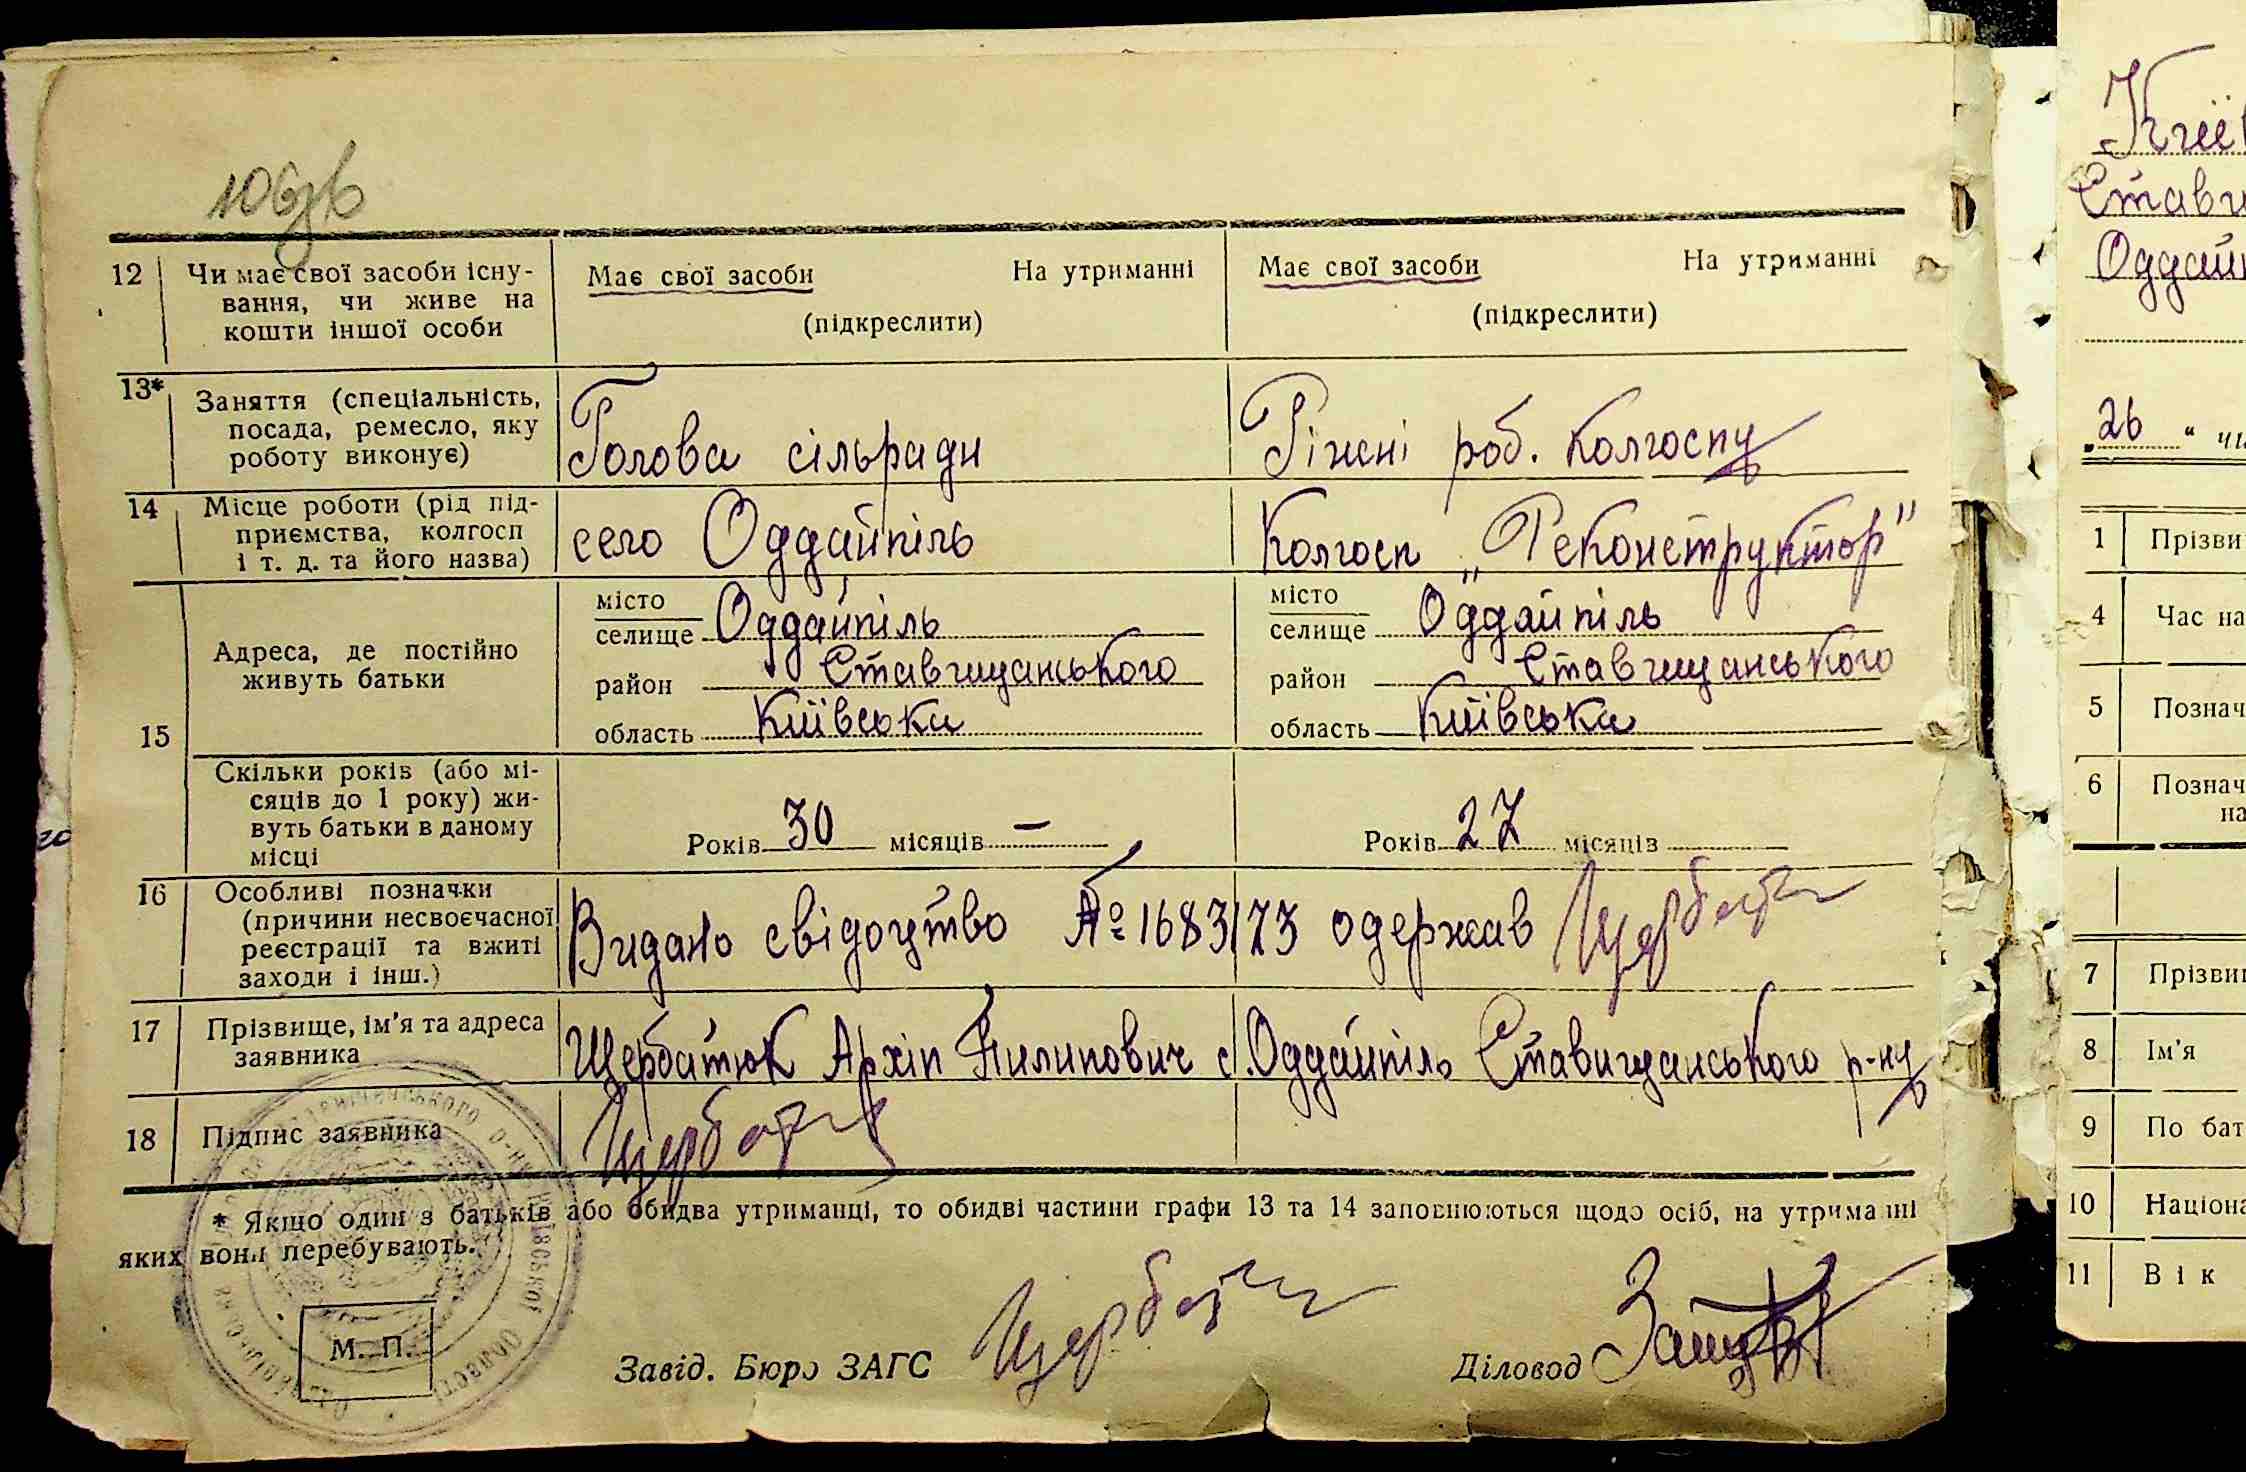 12 Чи має свої засоби існу-
вання, чи живе на
кошти іншої особи
Має свої засоби На утриманні
(підкреслити)
Має свої засоби На утриманні
(підкреслити)
13* Заняття (спеціальність,
посада, ремесло, яку
роботу виконує)
Голова сільради
Ріжні роб. колгоспу
14 Місце роботи (рід під-
приємства, колгосп
і т. д. та його назва)
село Оддайпіль
Колгосп „Реконструктор"
15 Адреса, де постійно
живуть батьки
місто
селище Оддайпіль
район Ставищанського
область Київська
місто
селище Оддайпіль
район Ставищанського
область Київська
Скільки років (або мі-
сяців до 1 року) жи-
вуть батьки в даному
місці
Років 30 місяців —
Років 27 місяців
16 Особливі позначки
(причини несвоєчасної
реєстрації та вжиті
заходи і інш.)
Видано свідоцтво № 1683173 одержав
17 Прізвище, ім'я та адреса
заявника
Щербатюк Архіп Пилипович с. Оддайпіль Ставищанського р-ну
18 Підпис заявника
* Якщо один з батьків або обидва утриманці, то обидві частини графи 13 та 14 заповнюються щодо осіб, на утриманні
яких вони перебувають.
М. П.
Завід. Бюро ЗАГС
Діловод
„26" чи
1 Прізви
4 Час на
5 Познач
6 Познач
на
7 Прізви
8 Ім'я
9 По бат
10 Націона
11 Вік